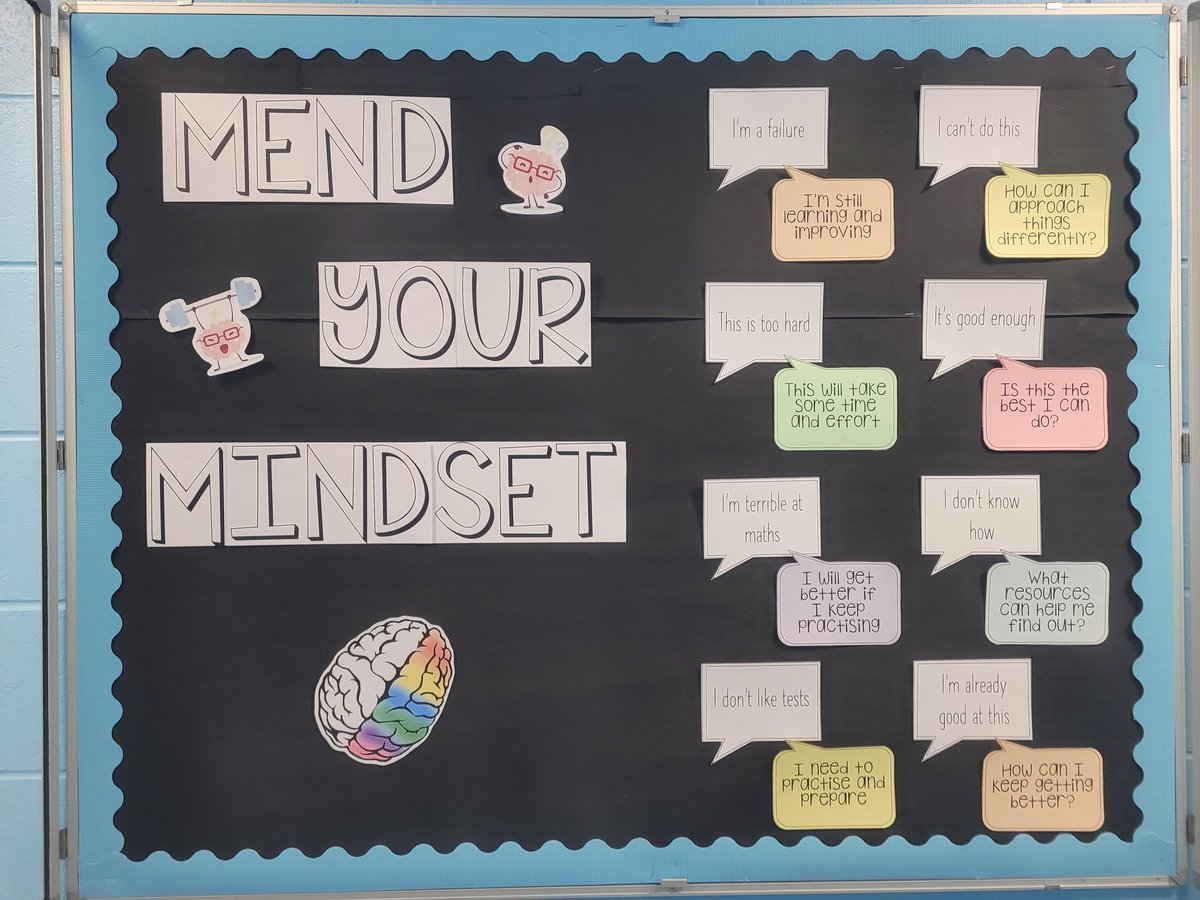 MEND
YOUR
MINDSET
I'm a failure
I'm still
learning and
improving
I can't do this
How can I
approach
things
differently?
This is too hard
This will take
some time
and effort
It's good enough
Is this the
best I can
do?
I'm terrible at
maths
I will get
better if
I keep
practising
I don't know
how
What
resources
can help me
find out?
I don't like tests
I need to
practise and
prepare
I'm already
good at this
How can I
keep getting
better?